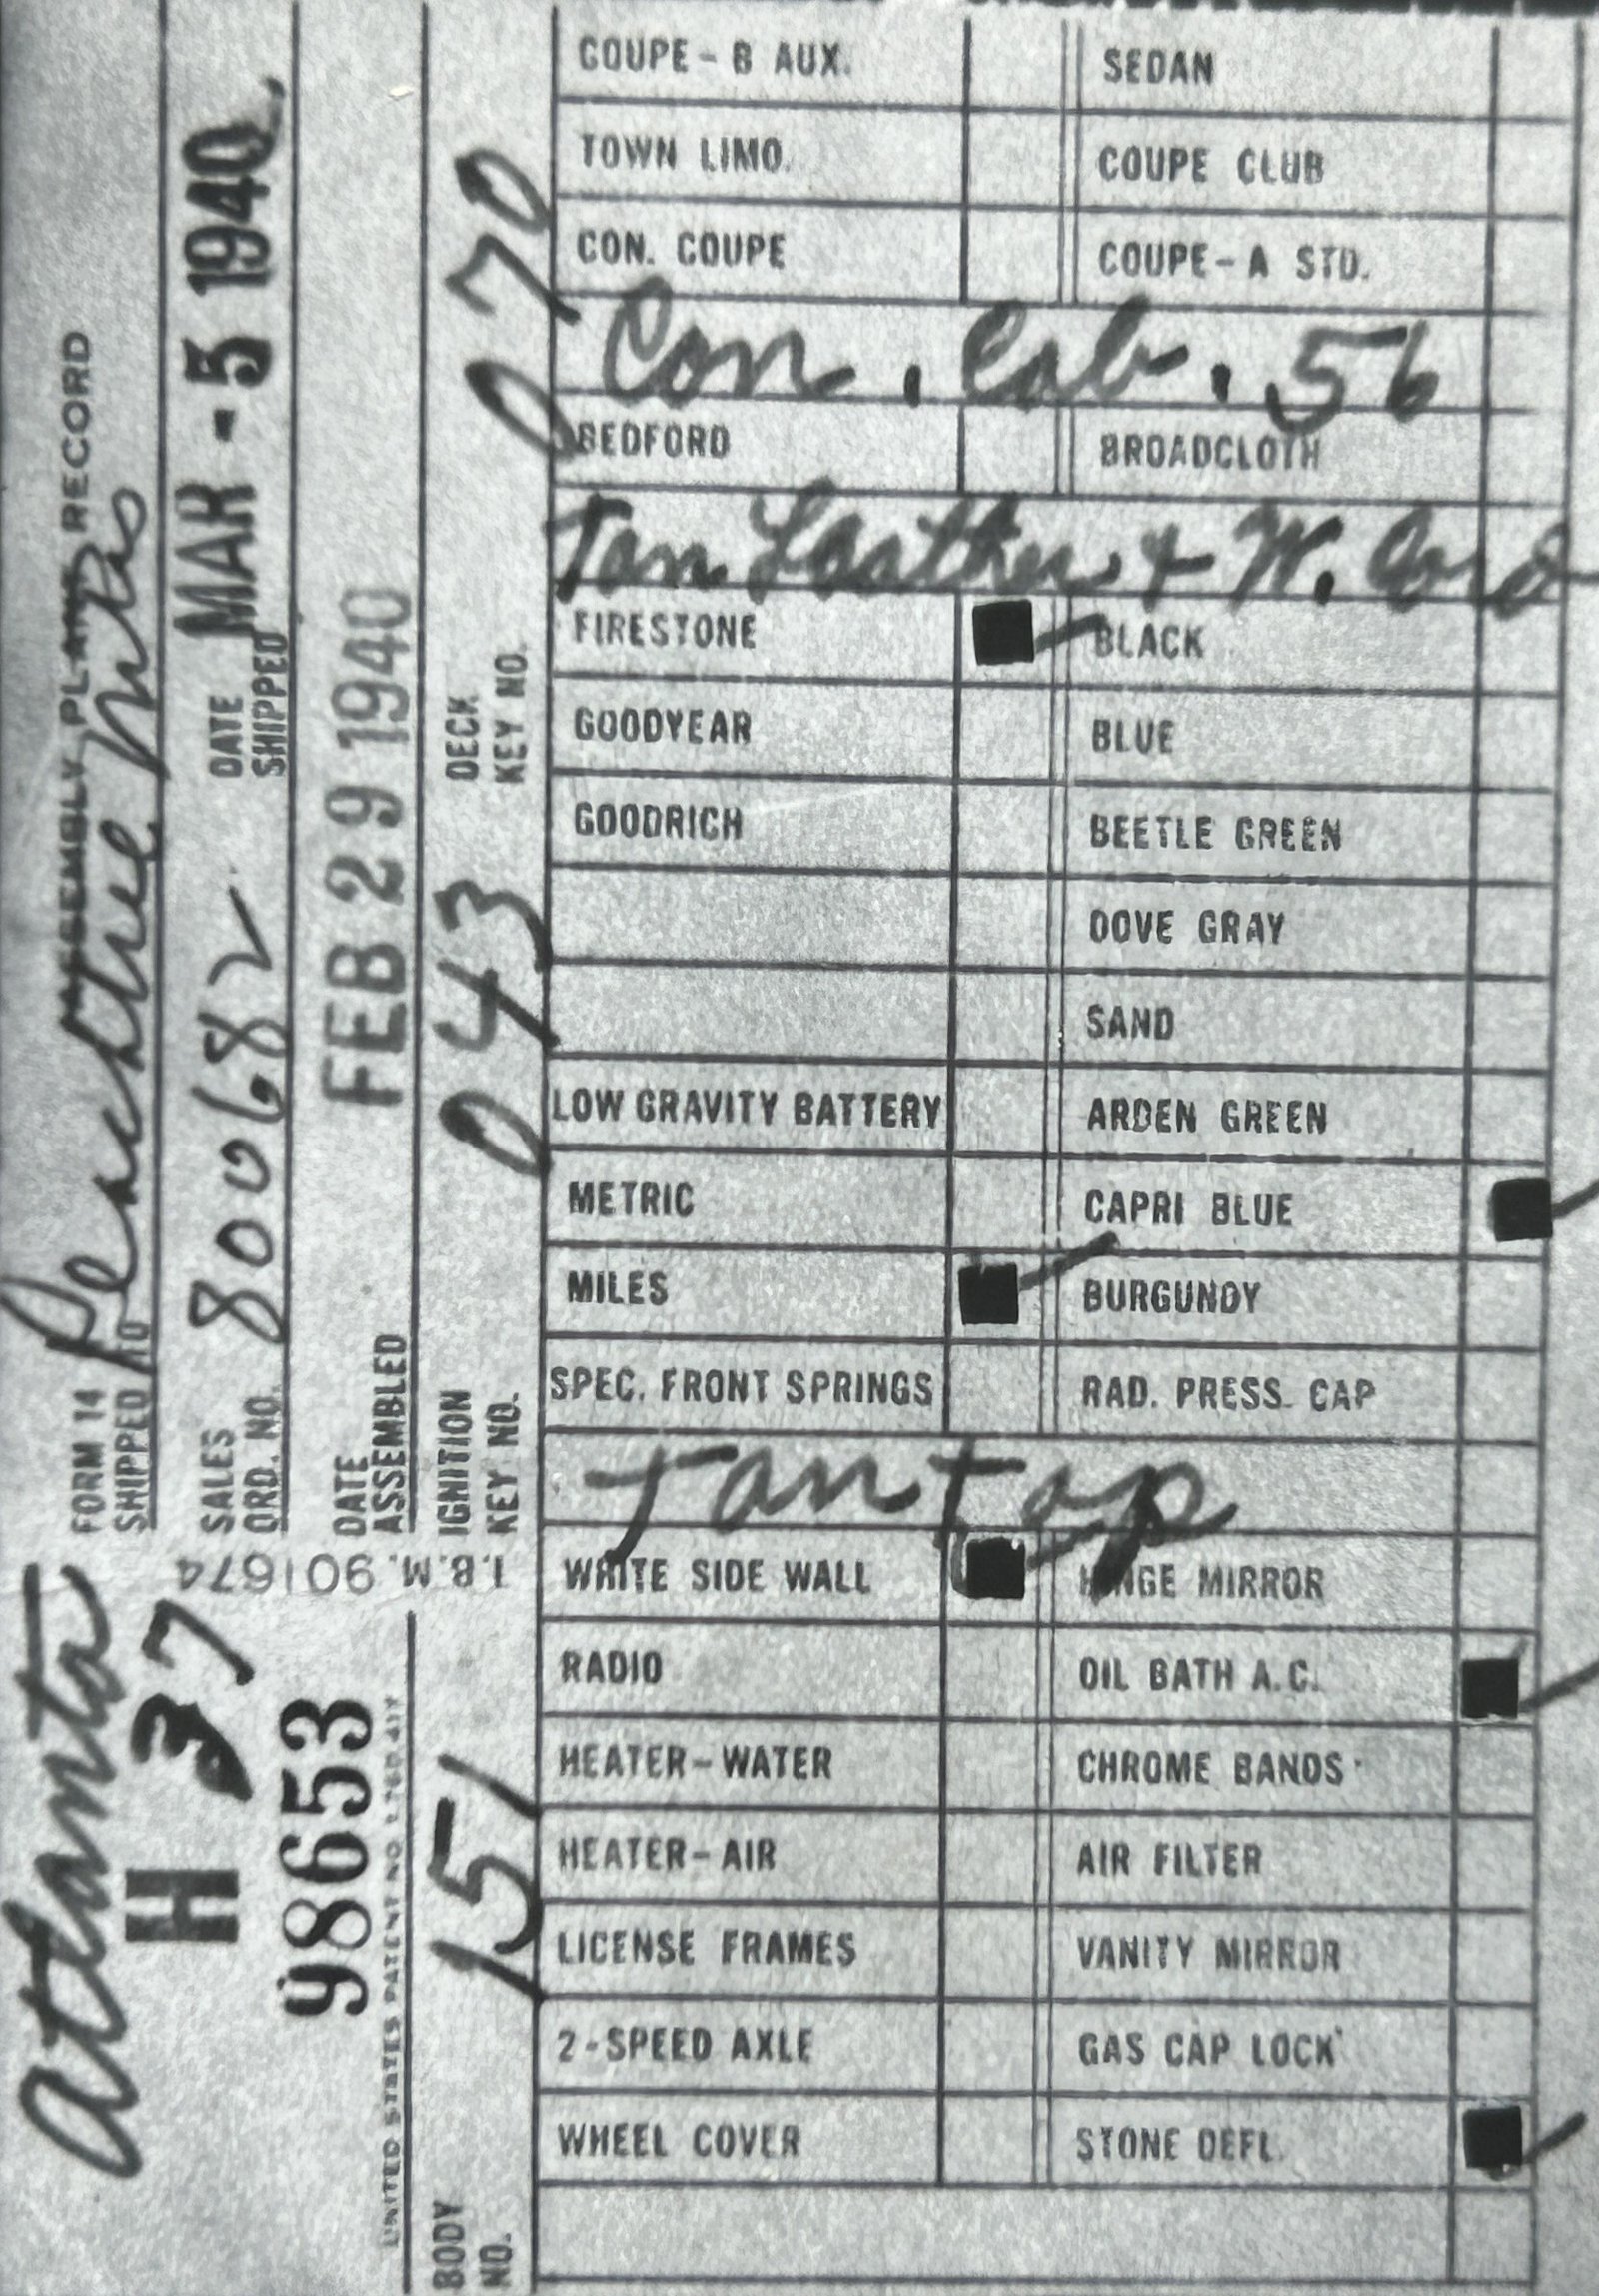 Atlanta
H 37
98653
UNITED STATES PATENT NO
BODY NO. 151
I.B.M. 901674
FORM 14
ASSEMBLY PLANT RECORD
SHIPPED TO Peachtree Mtrs
SALES ORD. NO. 800682
DATE SHIPPED MAR - 5 1940
DATE ASSEMBLED FEB 29 1940
IGNITION KEY NO. 043
DECK KEY NO. 070
COUPE - B AUX. SEDAN
TOWN LIMO. COUPE CLUB
CON. COUPE COUPE - A STD.
Con. Cab. 56
BEDFORD BROADCLOTH
Tan Leather & W. Cord
FIRESTONE BLACK
GOODYEAR BLUE
GOODRICH BEETLE GREEN
DOVE GRAY
SAND
LOW GRAVITY BATTERY ARDEN GREEN
METRIC CAPRI BLUE
MILES BURGUNDY
SPEC. FRONT SPRINGS RAD. PRESS. CAP
Tan top
WHITE SIDE WALL HINGE MIRROR
RADIO OIL BATH A.C.
HEATER-WATER CHROME BANDS
HEATER-AIR AIR FILTER
LICENSE FRAMES VANITY MIRROR
2-SPEED AXLE GAS CAP LOCK
WHEEL COVER STONE DEFL.